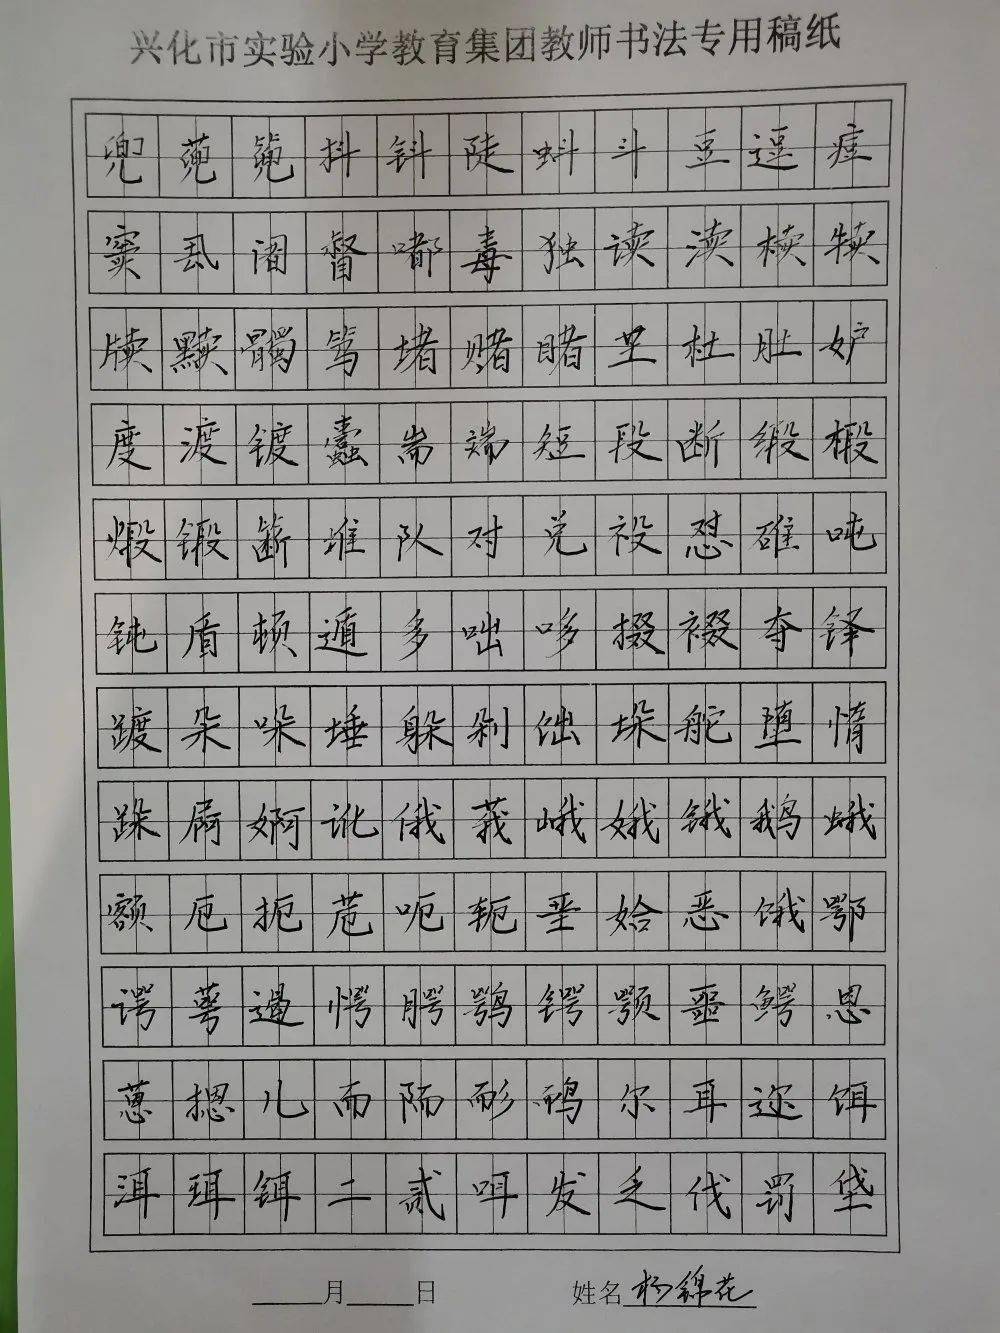 兴化市实验小学教育集团教师书法专用稿纸
兜蔸篼抖钭陡蚪斗豆逗痘
窦乧阇督嘟毒独读渎椟犊
牍黩髑笃堵赌睹芏杜肚妒
度渡镀蠹耑端短段断缎椴
煅锻簖堆队对兑祋怼碓吨
钝盾顿遁多咄哆掇裰夺铎
踱朵哚埵躲剁饳垛舵堕惰
跺屙婀讹俄莪峨娥锇鹅蛾
额厄扼苊呃轭垩姶恶饿鄂
谔萼遏愕腭鹗锷颚噩鳄恩
蒽摁儿而陑耏鸸尔耳迩饵
洱珥铒二贰咡发乏伐罚垡
月 日 姓名 杨锦花